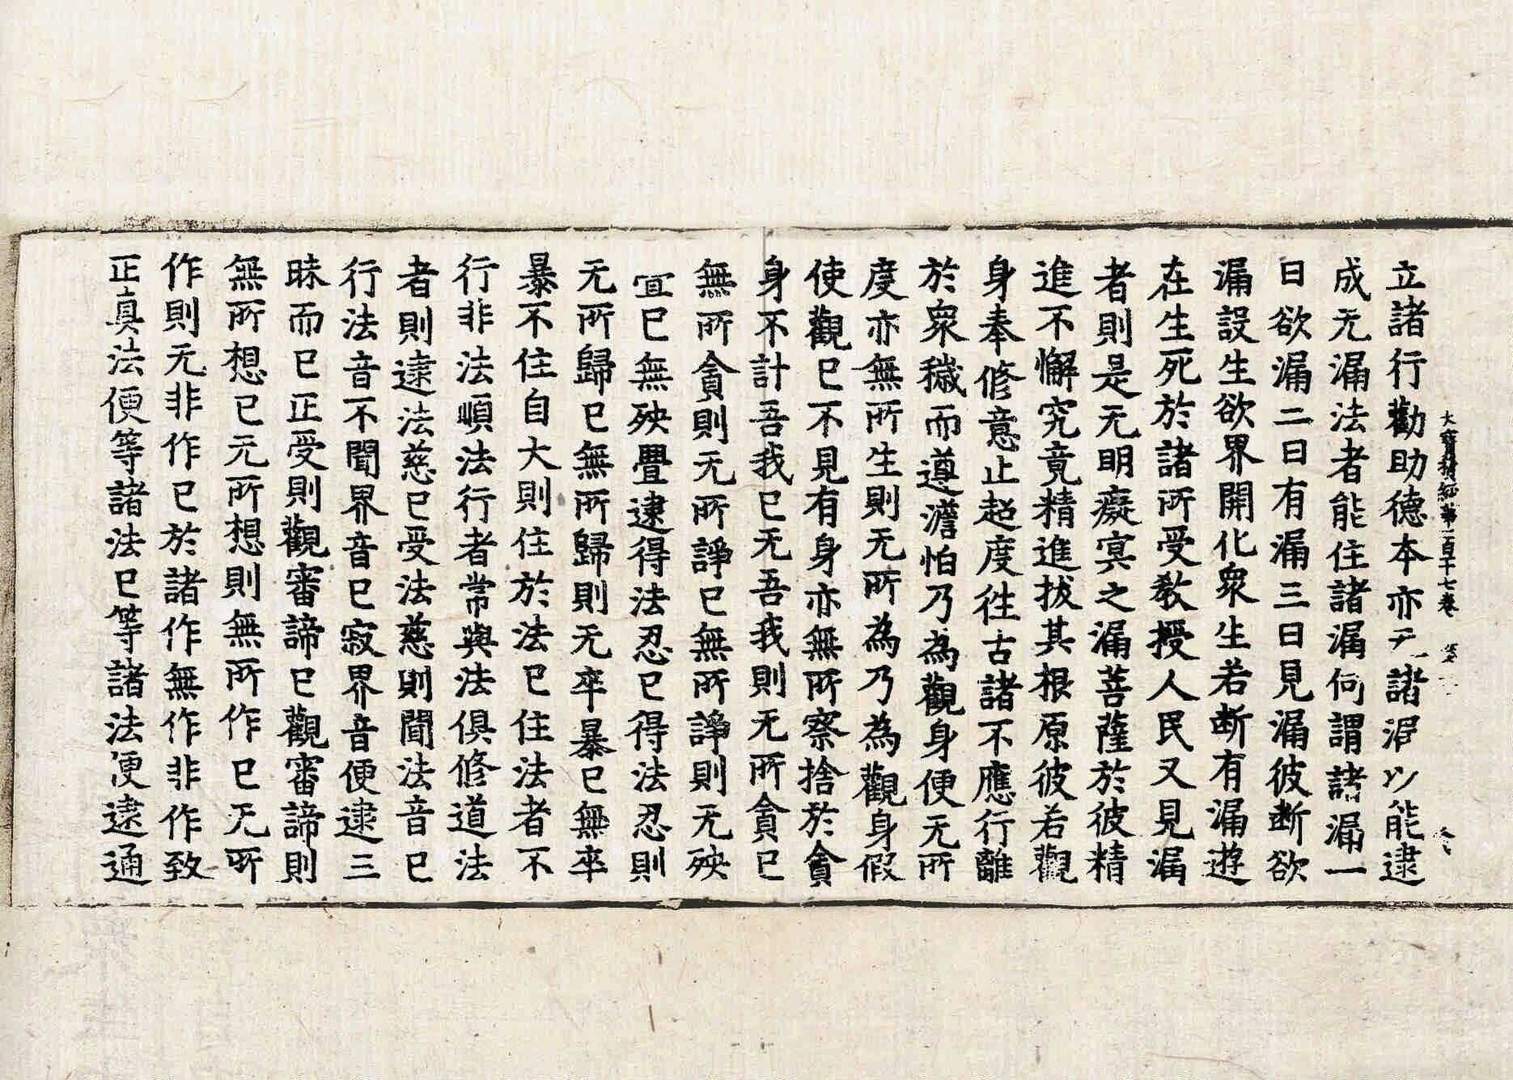 大寶積經第一百十七卷
立諸行勸助德本亦无諸漏以能逮
成无漏法者能住諸漏何謂諸漏一
曰欲漏二曰有漏三曰見漏彼断欲
漏設生欲界開化衆生若断有漏遊
在生死於諸所受教授人民又見漏
者則是无明癡冥之漏菩薩於彼精
進不懈究竟精進拔其根原彼若觀
身奉修意止超度往古諸不應行離
於衆穢而遵澹怕乃為觀身便无所
度亦無所生則无所為乃為觀身假
使觀已不見有身亦無所察捨於貪
身不計吾我已无吾我則无所貪已
無所貪則无所諍已無所諍則无殃
舋已無殃舋逮得法忍已得法忍則
无所歸已無所歸則无卒暴已無卒
暴不住自大則住於法已住法者不
行非法順法行者常與法俱修道法
者則逮法慈已受法慈則聞法音已
行法音不聞界音已寂界音便逮三
昧而已正受則觀審諦已觀審諦則
無所想已无所想則無所作已无所
作則无非作已於諸作無作非作致
正真法便等諸法已等諸法便逮通